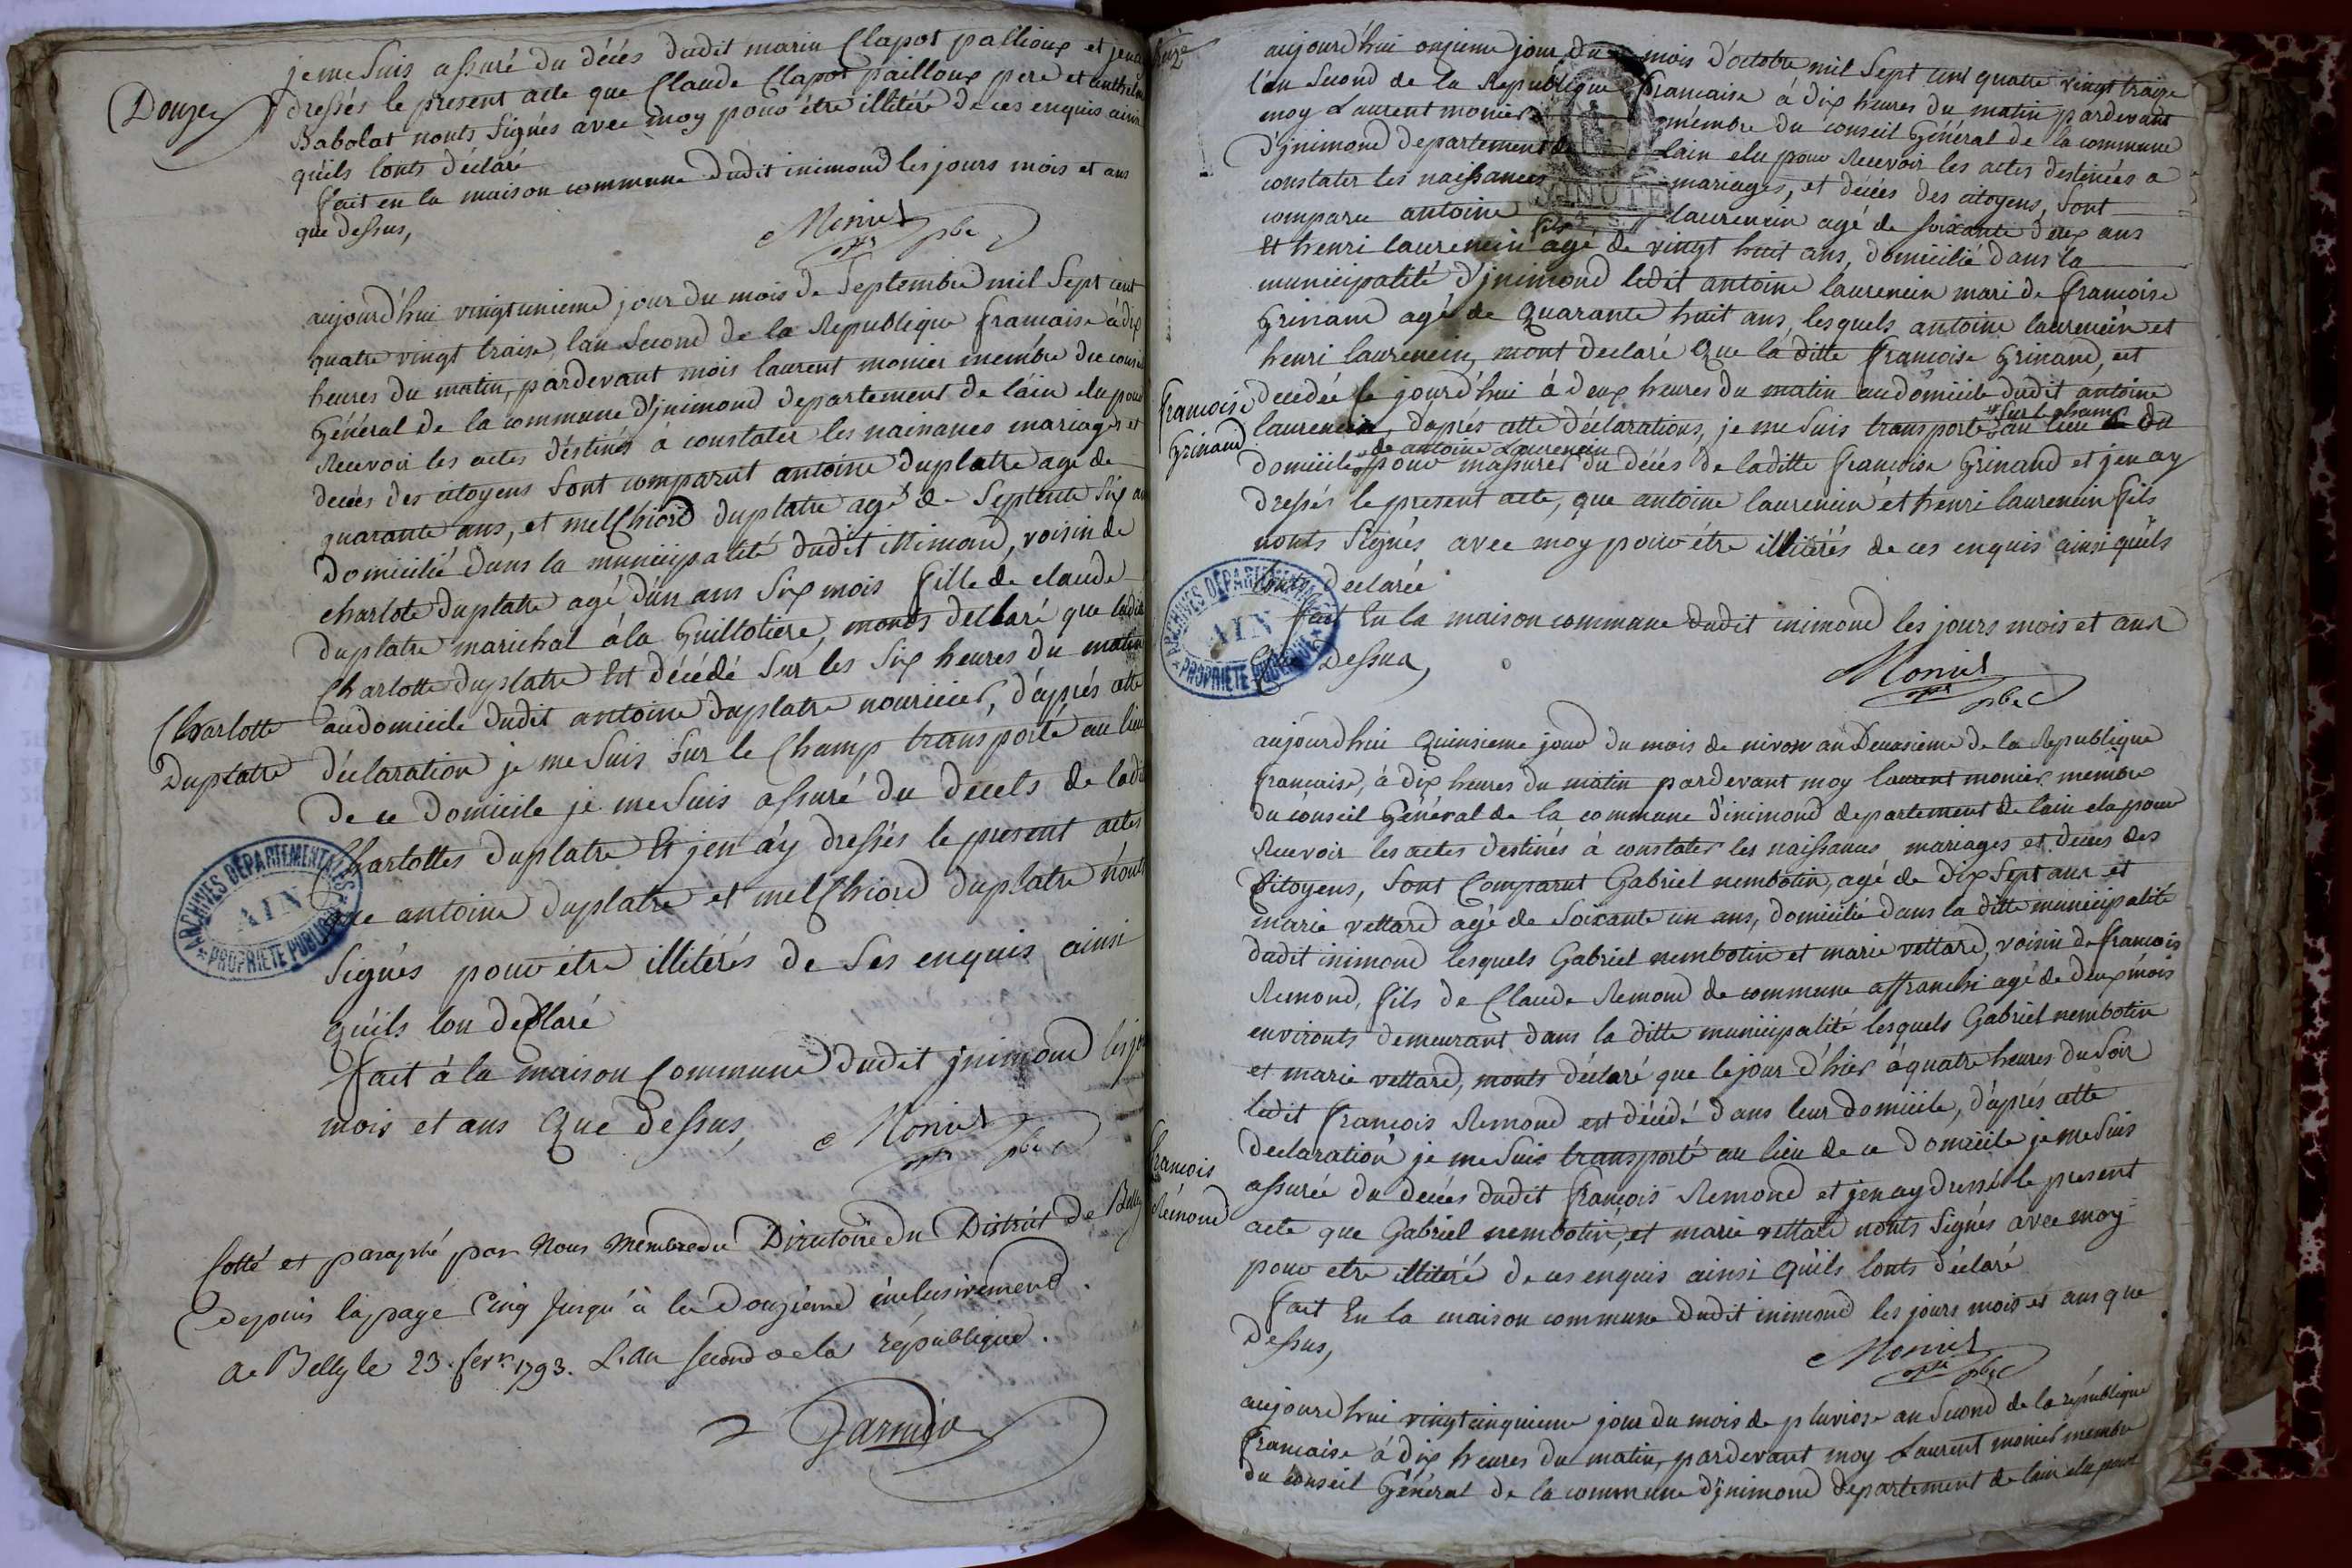 Douze
je me suis assuré du décés dudit marin Clapot pallioux et jen ai
dressés le present acte que Claude Clapot pailloux pere et
Babolat nonts signés avec moy pour être illitéré de ces enquis ainsi
quils lonts déclaré
fait en la maison commune dudit inimond les jours mois et ans
que dessus,
Monier
pbe
aujourd'hui vingtunieme jour du mois de Septembre mil Sept cent
quatre vingt traise, lan Second de la Republique francaise à dix
heures du matin, pardevant mois laurent monier membre du conseil
Général de la commune d'jnimond departement de lain elu pour
Recevoir les actes déstinés à constater les naisances mariages et
decés des citoyens sont comparut antoine Duplatre agé de
quarante ans, et melchiord duplatre agé de Septente Six ans
Domicilié dans la municipalité dudit inimond, voisin de
charlote Duplatre agé d'un ans Six mois fille de claude
duplatre marichal à la Guillotiere, monts declaré que ladite
Charlotte duplatre Est décédé sur les Six heures du matin
Charlotte
Duplatre
au domicile dudit antoine duplatre nouricier, d'aprés cette
déclaration je me suis sur le Champ transporté au lieu
de ce domicile je me suis assuré du decels de ladite
Charlottes duplatre Et jen ay dressés le present actes
que antoine duplatre et melchiord duplatre nonts
signés pour être illitérés de ses enquis ainsi
quils lon declaré
fait à la maison commune dudit jnimond les jours
mois et ans que dessus,
Monier
pbe
ARCHIVES DÉPARTEMENTALES
AIN
PROPRIÉTÉ PUBLIQUE
Cotté et paraphé par Nous Membre du Directoire du District de Belley
depuis la page Cinq jusqu'à la Douzieme inclusivement.
A Belley le 23. fevr. 1793. L'an second de la république.
Garnier
aujourd'hui onzieme jour du mois d'octobre mil Sept cent quatre vingt traize
l'an Second de la Republique francaise à dix heures du matin pardevant
moy Laurent monier mémbre du conseil Général de la commune
d'jnimond departement de lain elu pour Recevoir les actes destinées a
constater les naissances mariages, et décés des citoyens, sont
comparu antoine laurencin agé de soixante deux ans
Et henri laurencin fils agé de vingt huit ans, domicilié dans la
municipalité d'jnimond ledit antoine laurencin mari de francoise
Grinand agé de quarante huit ans, lesquels antoine laurencin et
henri laurencin, mont declaré que la ditte francoise Grinand, est
francoise
Grinand
decedée ce jourd'hui à deux heures du matin au domicile dudit antoine
laurencin, d'aprés cette déclarations, je me suis transporté sur le champ au lieu de du
domicile de antoine Laurencin pour massurer du décés de laditte francoise Grinand et jen ay
dressés le present acte, que antoine laurencin et henri laurencin fils
nonts signés avec moy pour être illitérés de ces enquis ainsi quils
lonts declarée
fait En la maison commune dudit inimond les jours mois et ans
que Dessus,
Monier
pbe
ARCHIVES DÉPARTEMENTALES
AIN
PROPRIÉTÉ PUBLIQUE
aujourdhui quinsieme jour du mois de nivose an Deuxieme de la Republique
francaise, à dix heures du matin pardevant moy laurent monier membre
du conseil Général de la commune d'inimond departement de lain elu pour
Recevoir les actes destinés à constater les naissances mariages et decés des
Citoyens, sont Comparut Gabriel nembotin, agé de dix sept ans et
marie vettard agé de Soixante un ans, domicilié dans la ditte municipalité
dudit inimond lesquels Gabriel nembotin et marie vettard, voisin de francois
Remond, fils de Claude Remond de commune affranchi agé de deux mois
environts demeurant dans la ditte municipalité lesquels Gabriel nembotin
et marie vettard, monts déclaré que le jour d'hier à quatre heures du soir
ledit francois Remond est décédé dans leur domicile, d'aprés cette
declaration je me suis transporté au lieu de ce domicile je me suis
francois
Rémond
assurée du decés dudit francois Remond et jen ay dressé le present
acte que Gabriel nembotin, et marie vettard nonts signés avec moy
pour etre illitéré de ces enquis ainsi quils lonts déclaré
fait En la maison commune dudit inimond les jours mois et ans que
Dessus,
Monier
pbe
aujourd'hui vingtcinquieme jour du mois de pluviose an Second de la république
francaise à dix heures du matin, pardevant moy Laurent monier membre
du conseil Général de la commune d'jnimond departement de lain elu pour